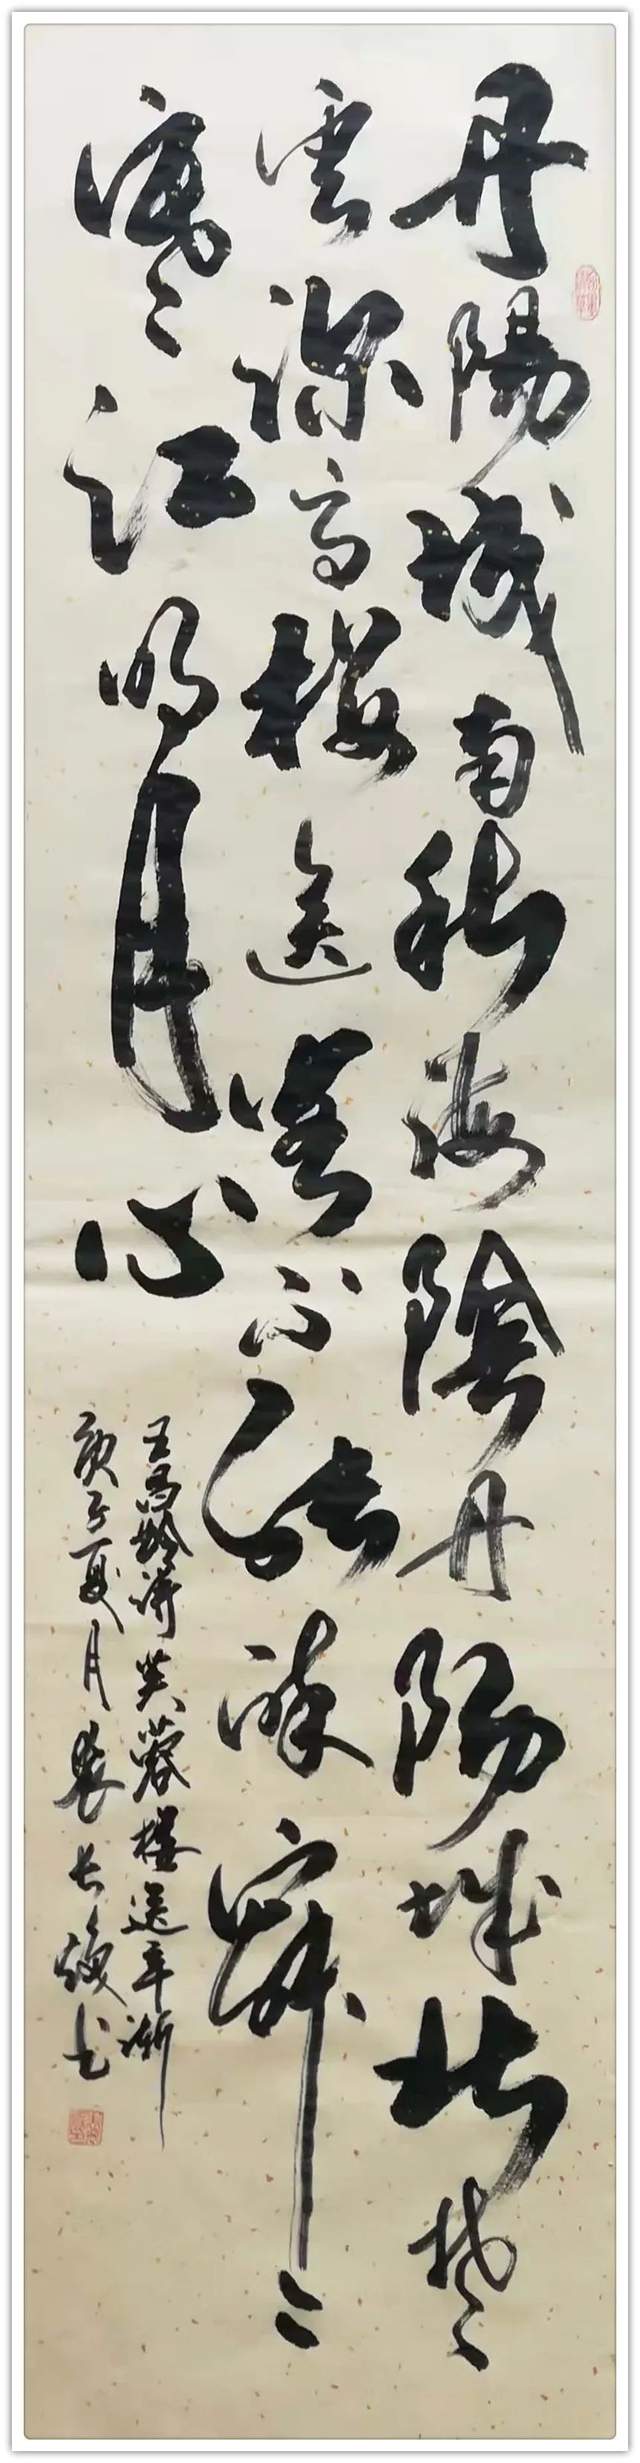 丹陽城南秋海陰丹陽城北楚
雲深高樓送客不能醉寂〻
寒江明月心
王昌齡詩芙蓉樓送辛漸
庚子夏月長书